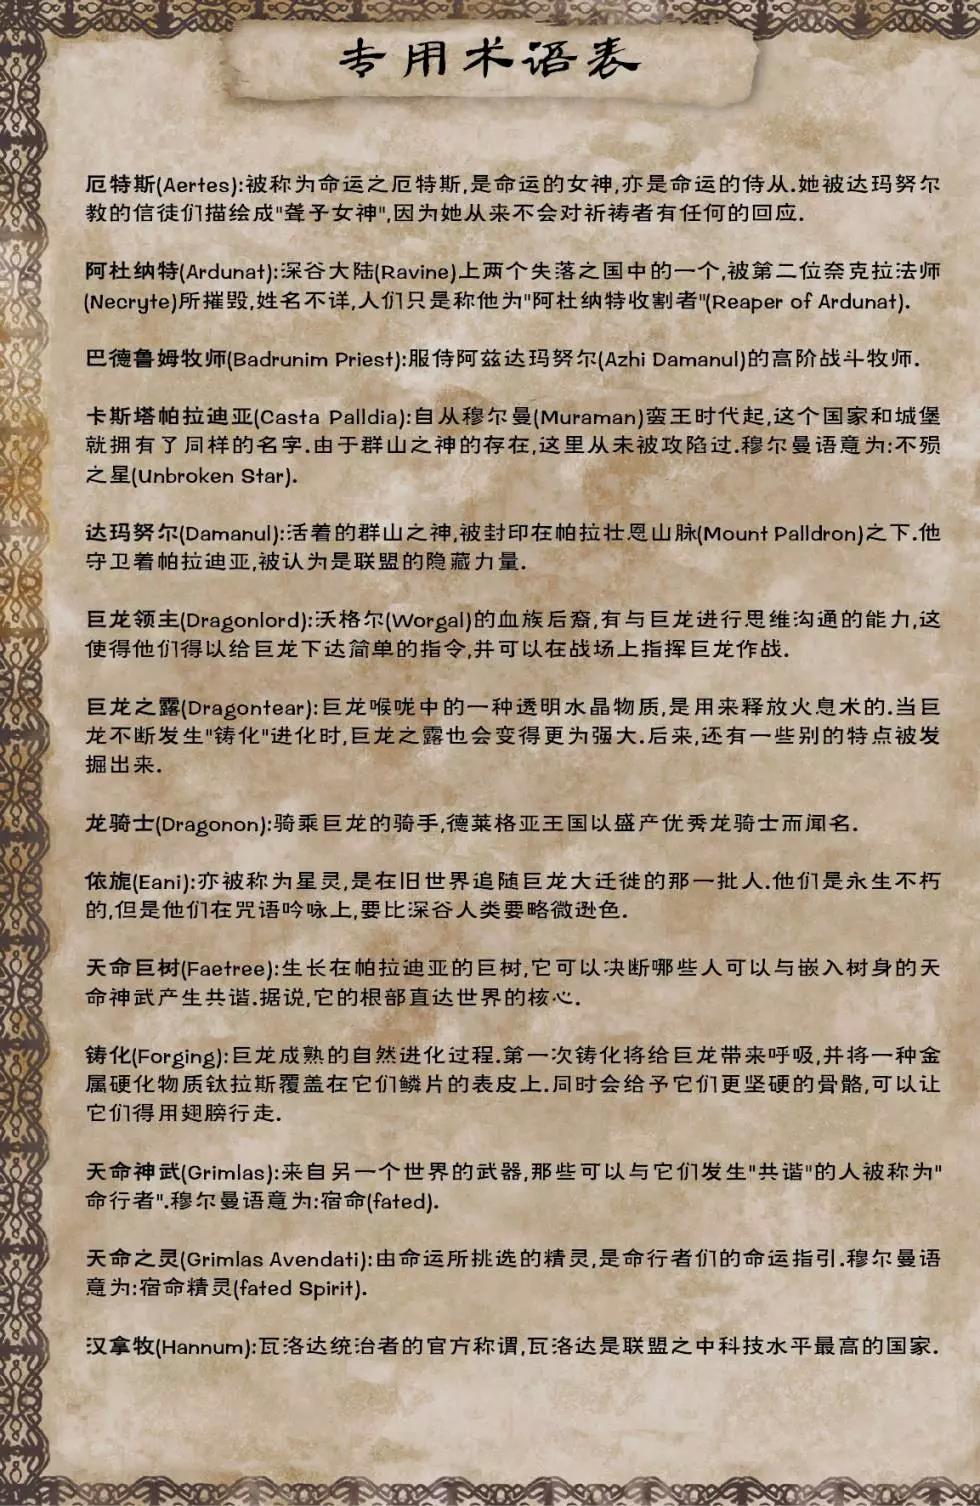 专用术语表
厄特斯(Aertes):被称为命运之厄特斯,是命运的女神,亦是命运的侍从.她被达玛努尔
教的信徒们描绘成"聋予女神",因为她从来不会对祈祷者有任何的回应.
阿杜纳特(Ardunat):深谷大陆(Ravine)上两个失落之国中的一个,被第二位奈克拉法师
(Necryte)所摧毁,姓名不详,人们只是称他为"阿杜纳特收割者"(Reaper of Ardunat).
巴德鲁姆牧师(Badrunim Priest):服侍阿兹达玛努尔(Azhi Damanul)的高阶战斗牧师.
卡斯塔帕拉迪亚(Casta Palldia):自从穆尔曼(Muraman)蛮王时代起,这个国家和城堡
就拥有了同样的名字.由于群山之神的存在,这里从未被攻陷过.穆尔曼语意为:不殒
之星(Unbroken Star).
达玛努尔(Damanul):活着的群山之神,被封印在帕拉壮恩山脉(Mount Palldron)之下.他
守卫着帕拉迪亚,被认为是联盟的隐藏力量.
巨龙领主(Dragonlord):沃格尔(Worgal)的血族后裔,有与巨龙进行思维沟通的能力,这
使得他们得以给巨龙下达简单的指令,并可以在战场上指挥巨龙作战.
巨龙之露(Dragontear):巨龙喉咙中的一种透明水晶物质,是用来释放火息术的.当巨
龙不断发生"铸化"进化时,巨龙之露也会变得更为强大.后来,还有一些别的特点被发
掘出来.
龙骑士(Dragonon):骑乘巨龙的骑手,德莱格亚王国以盛产优秀龙骑士而闻名.
依旎(Eani):亦被称为星灵,是在旧世界追随巨龙大迁徙的那一批人.他们是永生不朽
的,但是他们在咒语吟咏上,要比深谷人类要略微逊色.
天命巨树(Faetree):生长在帕拉迪亚的巨树,它可以决断哪些人可以与嵌入树身的天
命神武产生共谐.据说,它的根部直达世界的核心.
铸化(Forging):巨龙成熟的自然进化过程.第一次铸化将给巨龙带来呼吸,并将一种金
属硬化物质钛拉斯覆盖在它们鳞片的表皮上.同时会给予它们更坚硬的骨骼,可以让
它们得用翅膀行走.
天命神武(Grimlas):来自另一个世界的武器,那些可以与它们发生"共谐"的人被称为"
命行者".穆尔曼语意为:宿命(fated).
天命之灵(Grimlas Avendati):由命运所挑选的精灵,是命行者们的命运指引.穆尔曼语
意为:宿命精灵(fated Spirit).
汉拿牧(Hannum):瓦洛达统治者的官方称谓,瓦洛达是联盟之中科技水平最高的国家.